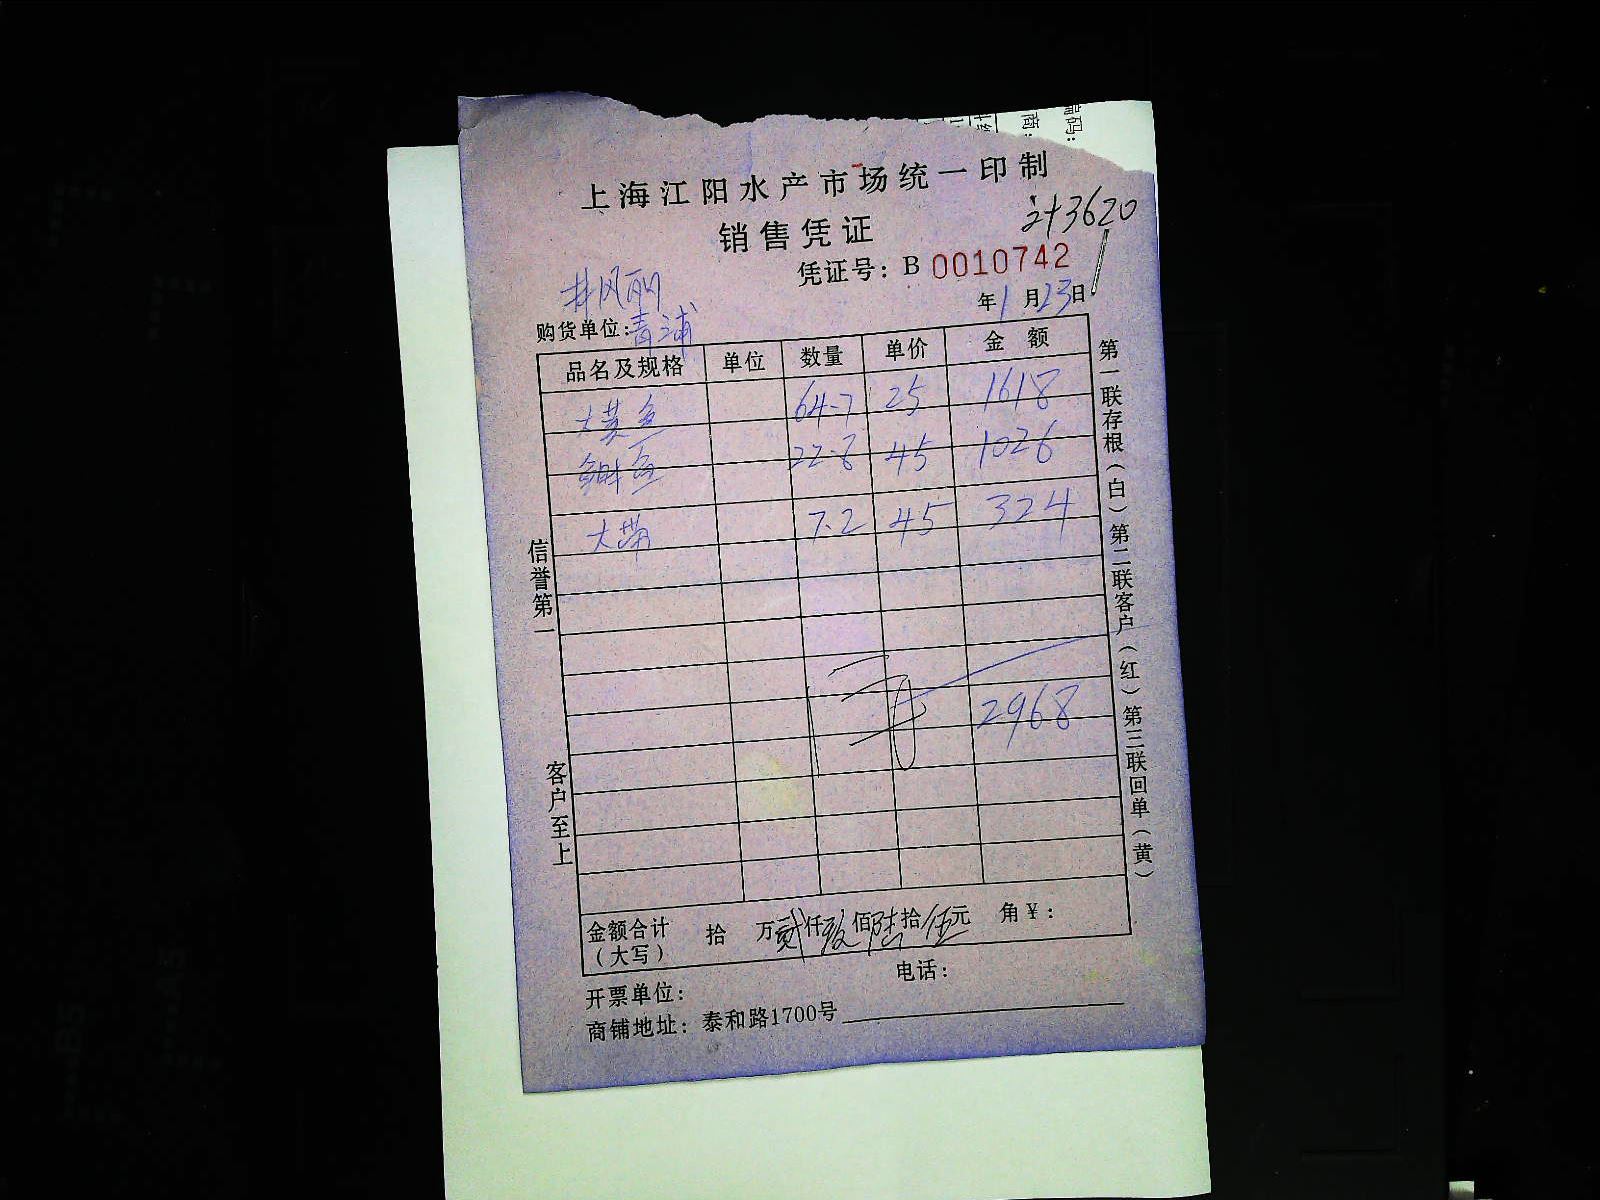 上海江阳水产市场统一印制
计3620
销售凭证
凭证号：B 0010742
年1月23日
井凤丽
购货单位：青浦
品名及规格 单位 数量 单价 金额
大黄鱼 64.7 25 1618
鲳鱼 22.8 45 1026
大带 7.2 45 324
2968
金额合计（大写） 拾 万贰仟玖佰陆拾伍元 角￥：
电话：
开票单位：
商铺地址：泰和路1700号
信誉第一
客户至上
第一联存根（白）第二联客户（红）第三联回单（黄）
编码：
商：